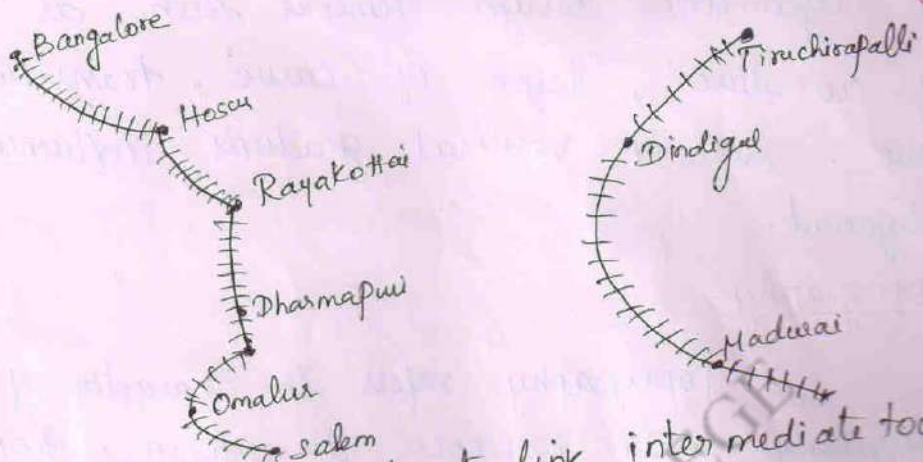 Bangalore
Hosur
Rayakottai
Dharmapuri
Omalur
Salem
Tiruchirapalli
Dindigul
Madurai
link intermediate to